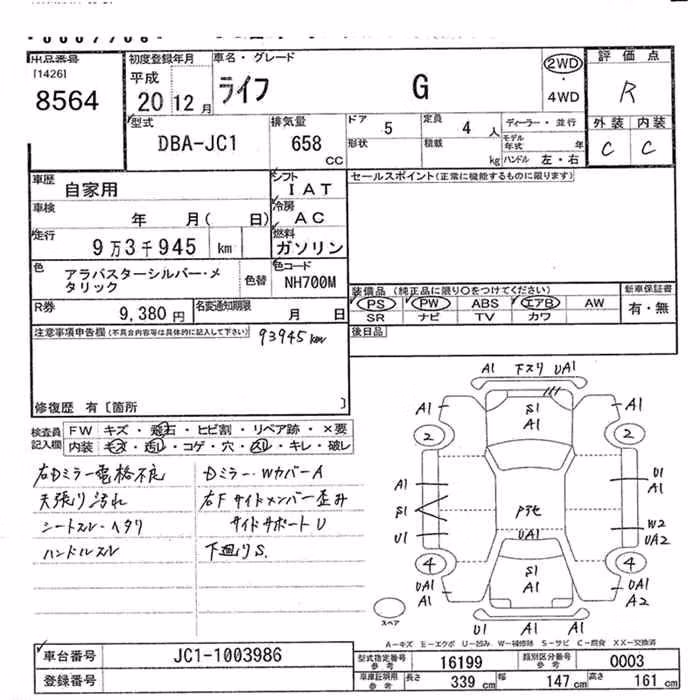 出品番号
[1426]
8564
初度登録年月
平成
20 12 月
車名・グレード
ライフ G
2WD
・
4WD
評価点
R
外装 内装
C C
型式
DBA-JC1
排気量
658
CC
ドア 5
定員 4 人
ディーラー・並行
形状
積載 kg
モデル年式 年
ハンドル 左・右
車歴
自家用
シフト
IAT
セールスポイント(正常に機能するものに限ります)
車検
年 月( 日)
冷房
AC
走行
9万3千945 km
燃料
ガソリン
色
アラバスターシルバー・メタリック
色替
色コード
NH700M
装備品 (純正品に限り○をつけてください)
PS PW ABS エアB AW
SR ナビ TV カワ
新車保証書
有・無
R券
9,380 円
名変通知期限
月 日
後日品
注意事項申告欄(不具合内容等は具体的に記入して下さい)
93945km
修復歴 有〔箇所 〕
検査員記入欄
FW キズ・飛石・ヒビ割・リペア跡・×要
内装 キズ・汚レ・コゲ・穴・スレ・キレ・破レ
右Dミラー電格不良
天張り汚れ
シートスレ・ヘタリ
ハンドルスレ
Dミラー・WカバーA
右Fサイドメンバー歪み
サイドサポートU
下廻りS.
A1 下スリ UA1
A1 S1 A1 A1
2 2
A1 U1
A1
S1
U1 W2
UA2
UA1
4 4
UA1 S1 UA1
A1 A1 A2
スペア
U1 A1 A1
A－キズ E－エクボ U－凹み W－補修跡 S－サビ C－腐食 XX－交換済
車台番号
JC1-1003986
登録番号
型式指定番号
参考
16199
類別区分番号
参考
0003
車庫証明用
参考
長さ 339 cm
幅 147 cm
高さ 161 cm